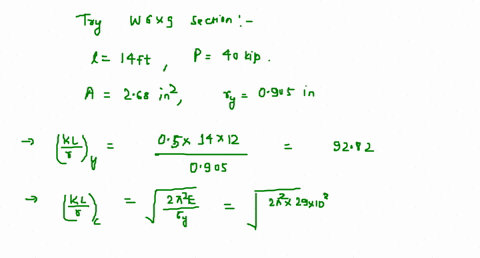 Try W6x9 section:-
l = 14ft, P = 40 kip.
A = 2.68 in², ry = 0.905 in
→ (KL/r)y = 0.5 x 14 x 12 / 0.905 = 92.82
→ (KL/r)c = √(2π²E/σy) = √(2π² x 29x10³